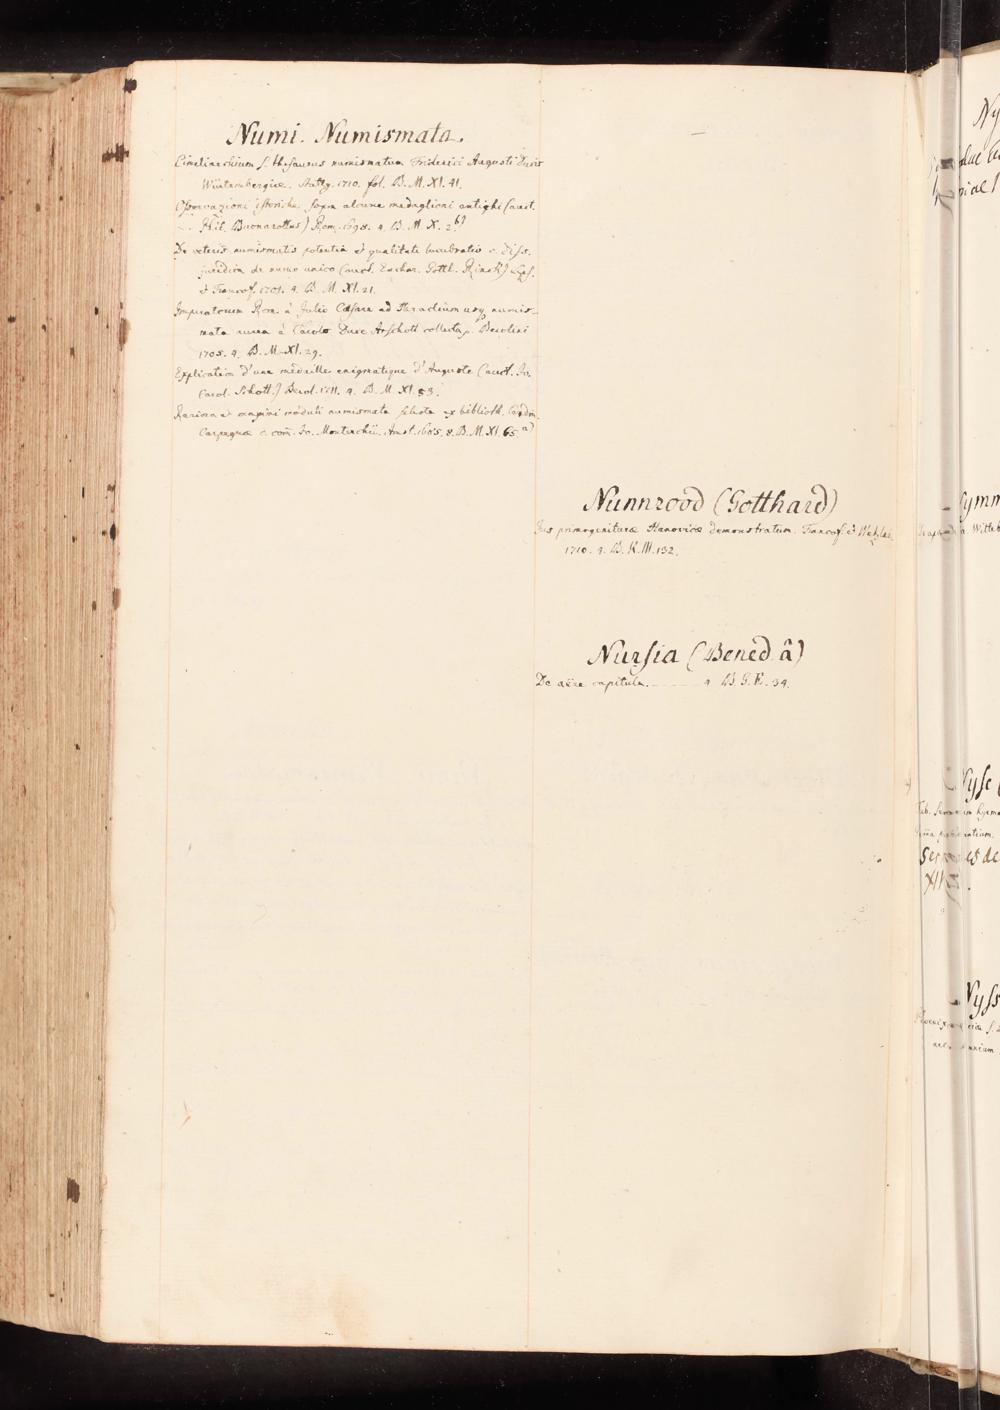 Numi. Numismata.
Cimeliarchium s. thesaurus numismatum Friderici Augusti Ducis
Würtembergiæ. Stuttg. 1710. fol. B. M. XI. 41.
Osservazioni istoriche sopra alcuni medaglioni antighi (auct.
Phil. Buonarottus) Rom. 1698. 4. B. M. X. 2.b)
De veteris numismatis potentia et qualitate lucubratio c. diss.
juridica de numo unico (auct. Euchar. Gottl. Rinck) Lips.
et Francof. 1701. 4. B. M. XI. 21.
Imperatorum Rom. à Julio Cæsare ad Heraclium usq numis-
mata aurea à Carolo Duce Arschott collecta. Berolini
1705. 4. B. M. XI. 29.
Explication d'une medaille enigmatique d'Auguste (auct. Jo.
Carol. Schott.) Berol. 1711. 4. B. M. XI. 53.
Rariora et maximi moduli numismata selecta ex biblioth. Cardin.
Carpegnæ c. com̄. Jo. Monterchii. Amst. 1685. 8. B. M. XI. 65 a)
Nunnrood (Gotthard)
Jus primogenituræ Hanovicæ demonstratum. Francof. et Wetzlar
1710. 4. B. K. III. 132.
Nursia (Bened. â)
De aëre capitula. 4. B. G. E. 34.